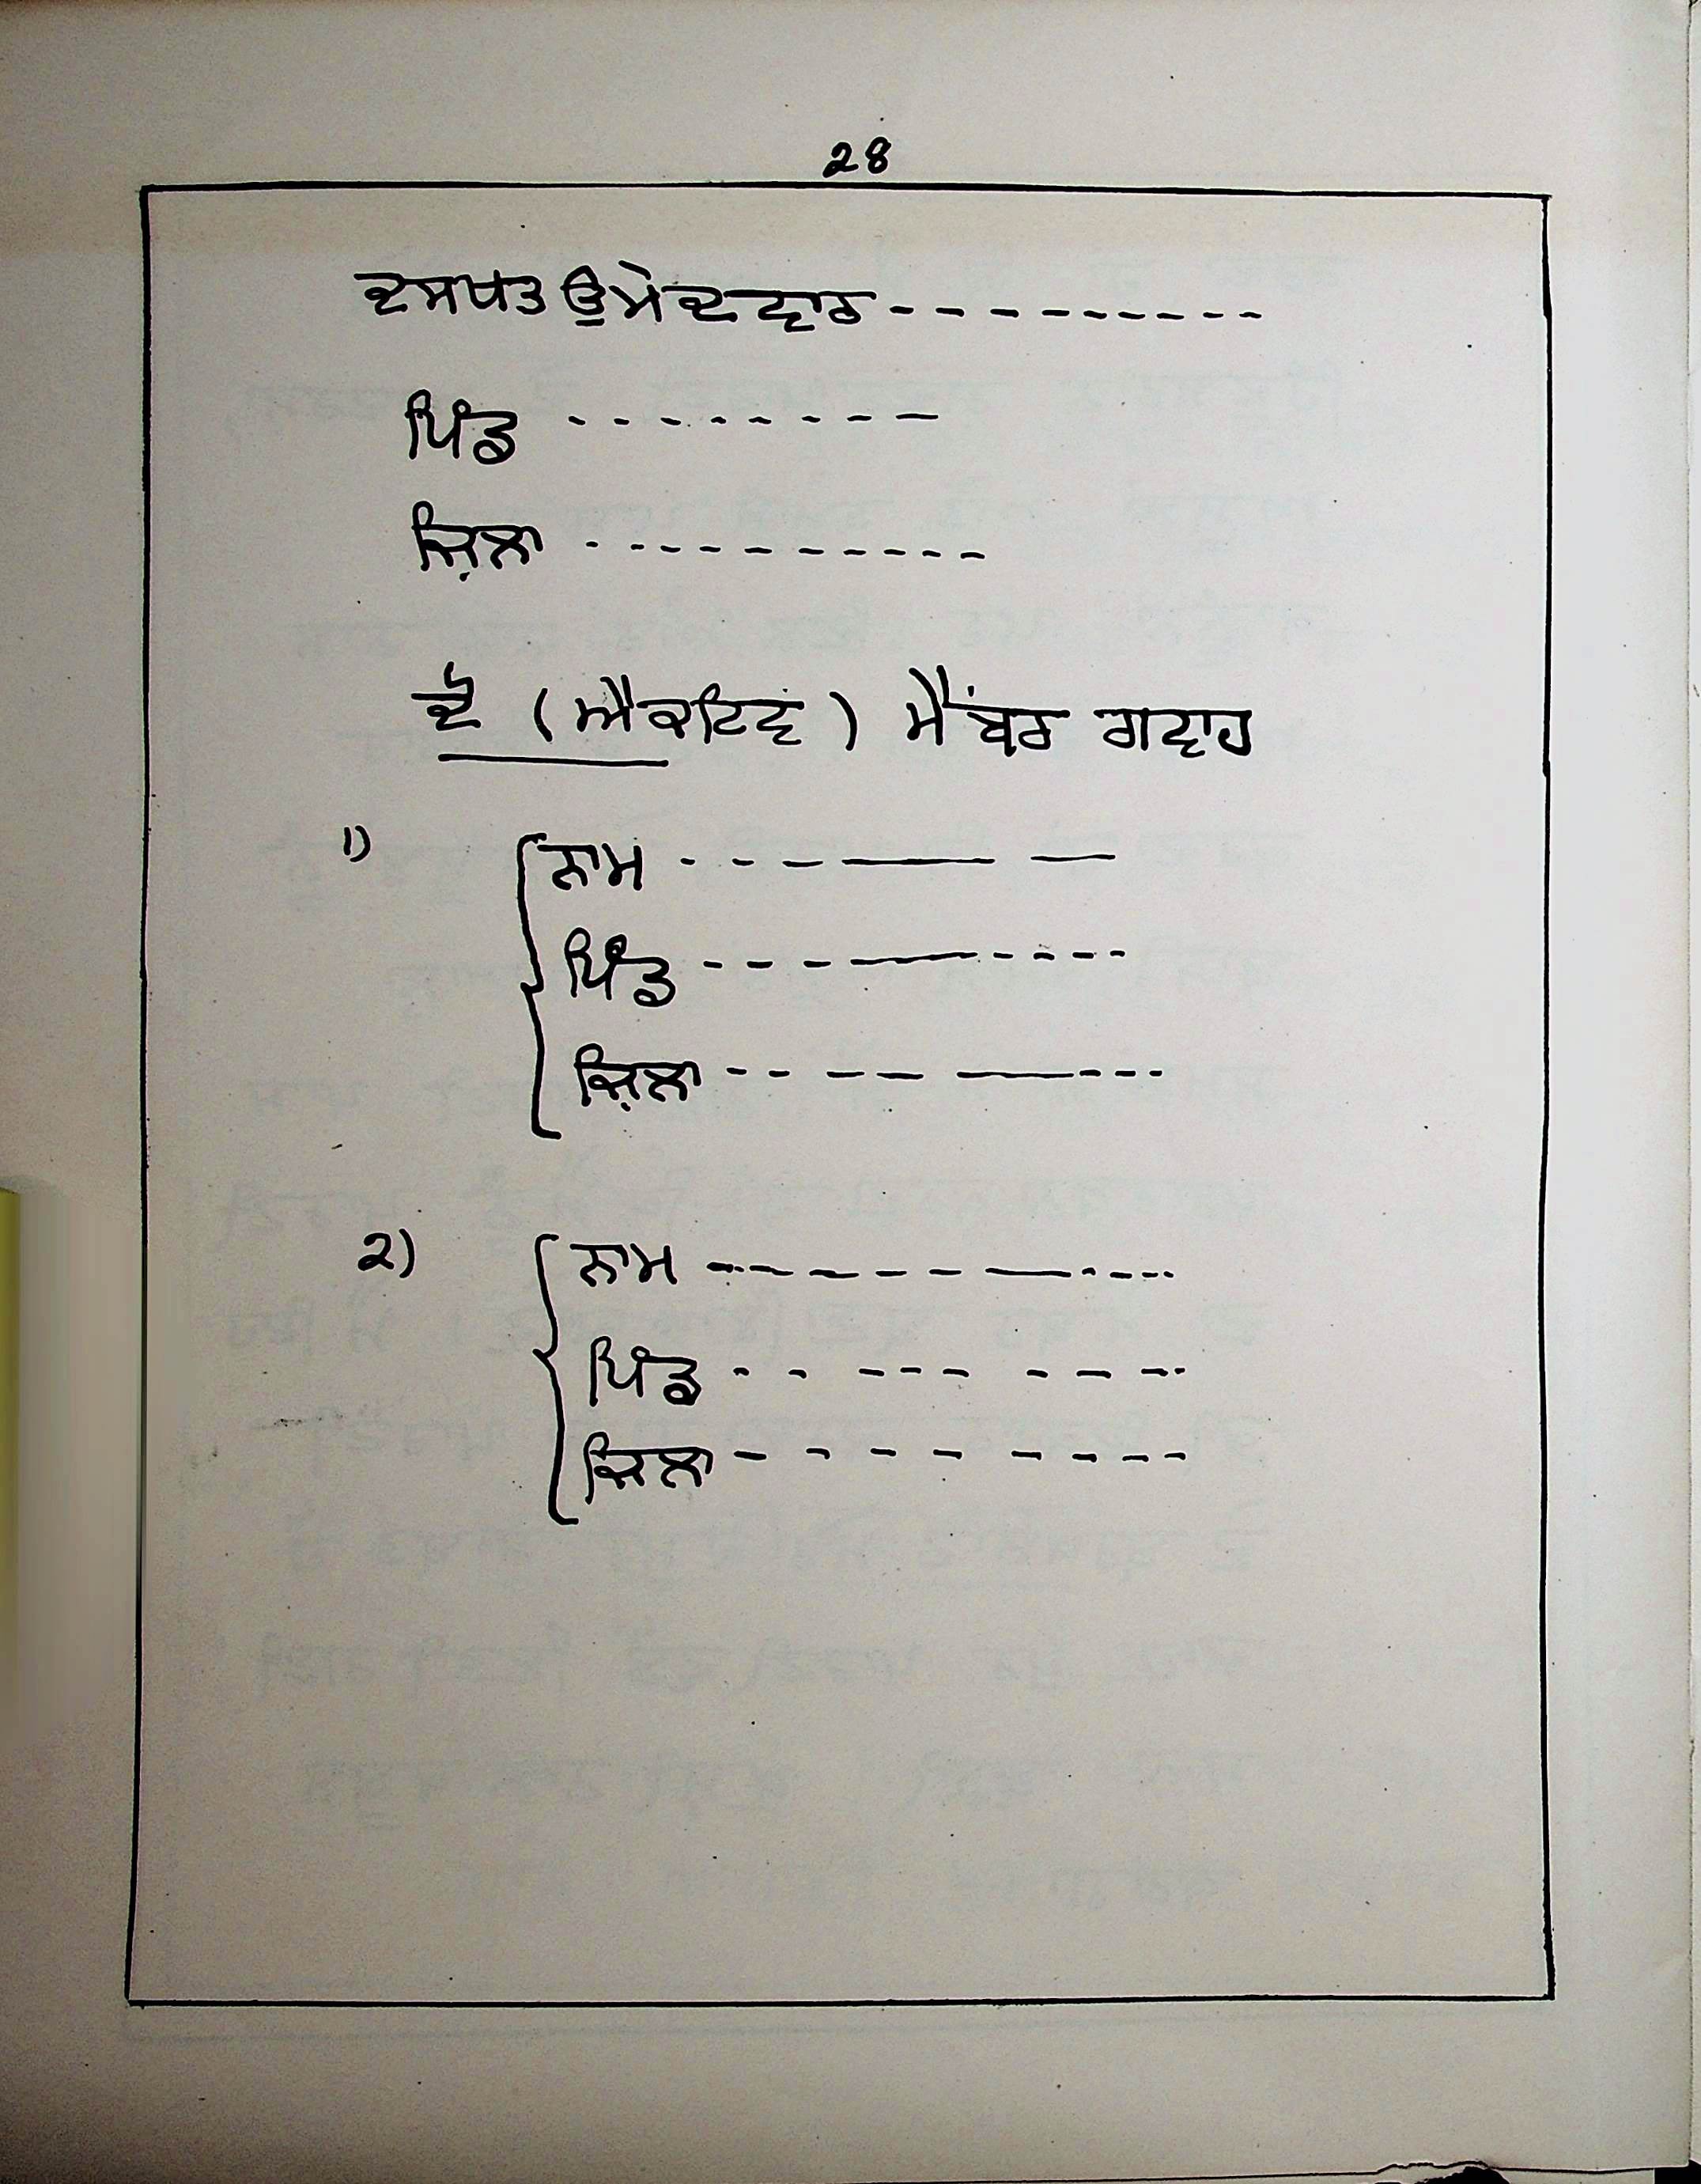 28
ਦਸਖਤ ਉਮੇਦਵਾਰ ----------
ਪਿੰਡ ---------
ਜ਼ਿਲਾ ----------
ਦੋ (ਐਕਟਿਵ) ਮੈਂਬਰ ਗਵਾਹ
1) ਨਾਮ ----------
ਪਿੰਡ ----------
ਜ਼ਿਲਾ ----------
2) ਨਾਮ ----------
ਪਿੰਡ ----------
ਜ਼ਿਲਾ ----------